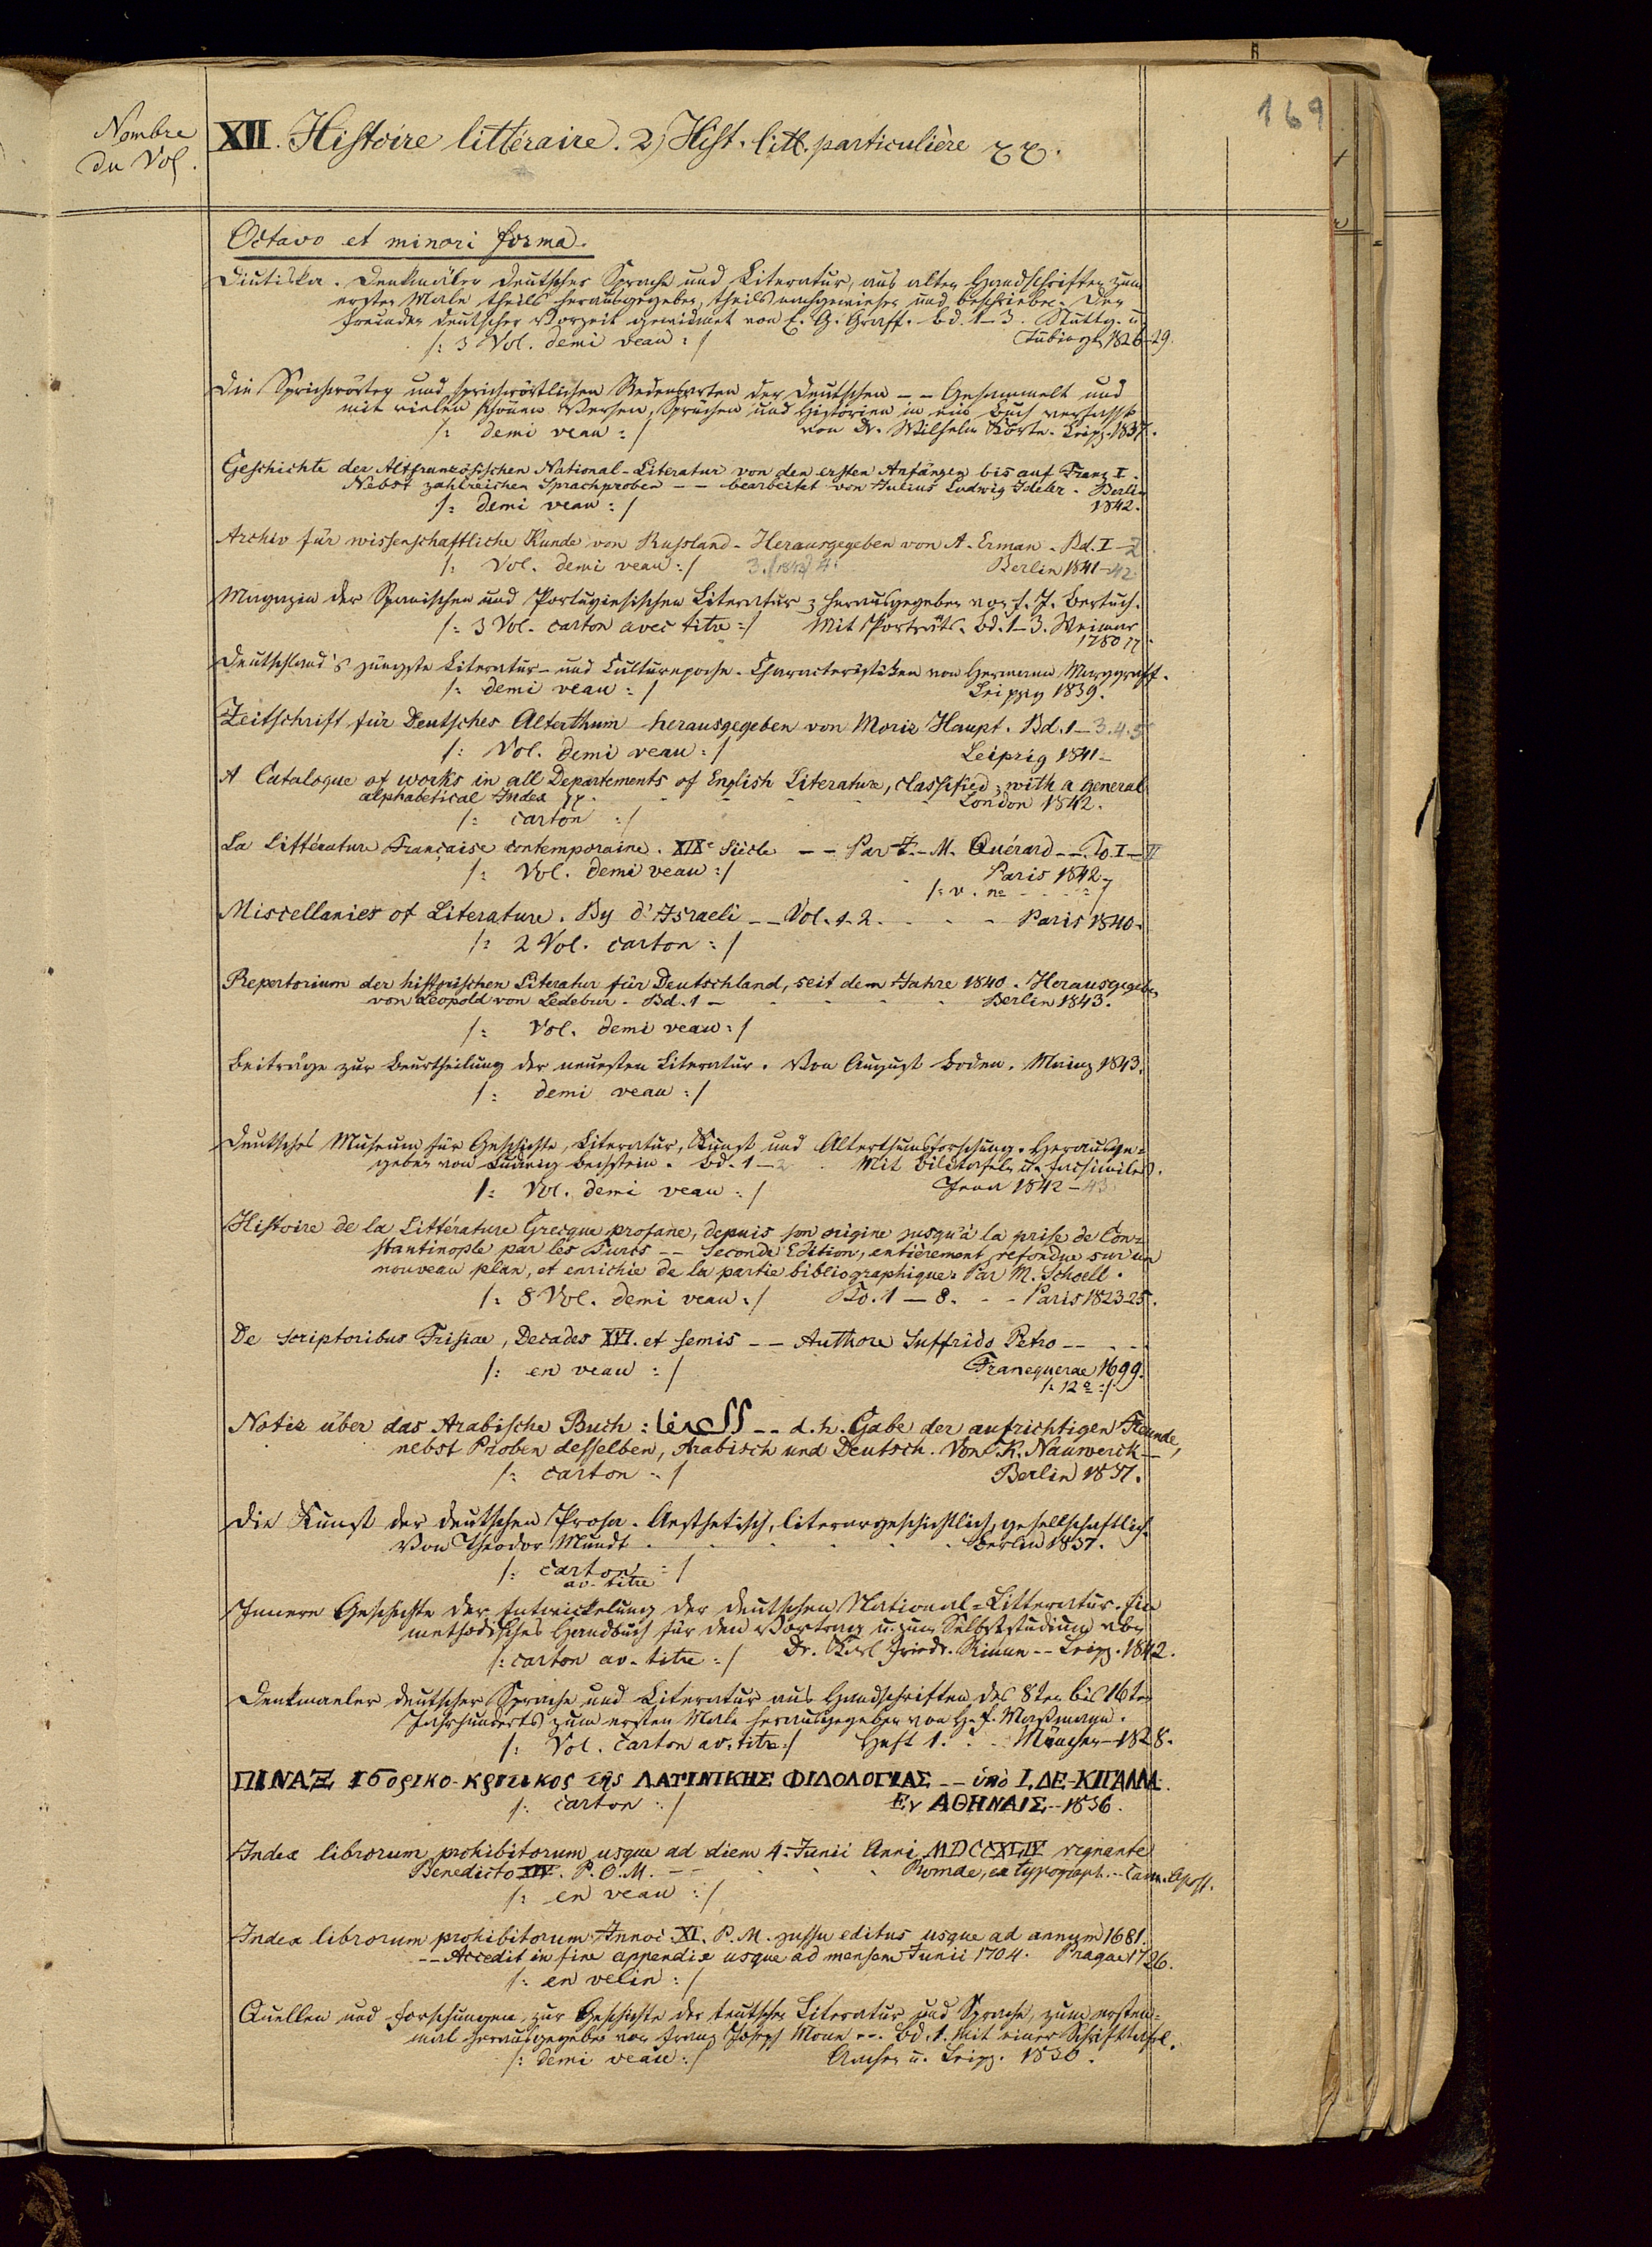 169
Nombre
du Vol.
XII. Histoire littéraire. 2) Hist. litt. particulière
Octavo et minori forma.
Diutiska. Denkmäler deutscher Sprache und Literatur, aus alten Handschriften zum
ersten Male theils herausgegeben, theils nachgewiesen und beschrieben. Den
Freunden deutscher Vorzeit gewidmet von E. G. Graff. Bd. 1–3. Stuttg. u.
/: 3 Vol. demi veau :/ Tübingen 1826–29.
Die Sprichwörter und sprichwörtlichen Redensarten der Deutschen – – Gesammelt und
mit vielen schönen Versen, Sprüchen und Historien in ein Buch verfasst
/: demi veau :/ von Dr. Wilhelm Körte. Leipz. 1837.
Geschichte der Altfranzösischen National-Literatur von den ersten Anfängen bis auf Franz I.
Nebst zahlreichen Sprachproben – – bearbeitet von Julius Ludwig Ideler. Berlin
/: demi veau :/ 1842.
Archiv für wissenschaftliche Kunde von Russland. Herausgegeben von A. Erman. Bd. I–2.
/: Vol. demi veau :/ 3. (1843) 4. Berlin 1841–42
Magazin der Spanischen und Portugiesischen Literatur; herausgegeben von F. J. Bertuch.
/: 3 Vol. carton avec titre :/ Mit Porträts. Bd. 1–3. Weimar
1780
Deutschland's jüngste Literatur- und Culturepoche. Characteristiken von Hermann Marggraff.
/: demi veau :/ Leipzig 1839.
Zeitschrift für Deutsches Alterthum herausgegeben von Moriz Haupt. Bd. 1–3.4.5
/: Vol. demi veau :/ Leipzig 1841–
A Catalogue of works in all Departements of English Literature, classified; with a general
alphabetical Index London 1842.
/: carton :/
La Littérature Française contemporaine. XIXe Siècle – – Par J.-M. Quérard – – To. I–II
/: Vol. demi veau :/ Paris 1842–
/: v. no :/
Miscellanies of Literature. By d'Israeli – – Vol. 1–2. Paris 1840.
/: 2 Vol. carton :/
Repertorium der historischen Literatur für Deutschland, seit dem Jahre 1840. Herausgegeben
von Leopold von Ledebur. Bd. 1 – Berlin 1843.
/: Vol. demi veau :/
Beiträge zur Beurtheilung der neuesten Literatur. Von August Boden. Mainz 1843.
/: demi veau :/
Deutsches Museum für Geschichte, Literatur, Kunst und Alterthumsforschung. Herausge=
geben von Ludwig Bechstein. Bd. 1–2 Mit Bildtafeln u. Facsimiles.
/: Vol. demi veau :/ Jena 1842–43
Histoire de la Littérature Grecque profane, depuis son origine jusqu'à la prise de Con=
stantinople par les Turcs – – Seconde Edition, entièrement refondue sur un
nouveau plan, et enrichie de la partie bibliographique. Par M. Schoell.
/: 8 Vol. demi veau :/ To. 1–8. – – Paris 1823–25.
De scriptoribus Frisiae, Decades XVI. et semis – – Authore Suffrido Petro – –
/: en veau :/ Franequerae 1699.
/: 12° :/
Notiz über das Arabische Buch: – – d. h. Gabe der aufrichtigen Freunde,
nebst Proben desselben, Arabisch und Deutsch. Von K. Nauwerck –
/: carton :/ Berlin 1837.
Die Kunst der deutschen Prosa. Aesthetisch, literargeschichtlich, gesellschaftlich.
Von Theodor Mundt. Berlin 1837.
/: carton :/
av. titre
Innere Geschichte der Entwickelung der deutschen National=Litteratur. Ein
methodisches Handbuch für den Vortrag u. zum Selbststudium von
/: carton av. titre :/ Dr. Karl Friedr. Rinne – – Leipz. 1842.
Denkmaeler deutscher Sprache und Literatur aus Handschriften des 8ten bis 16ten
Jahrhunderts zum ersten Male herausgegeben von H. F. Maßmann.
/: Vol. carton av. titre :/ Heft 1. München – 1828.
ΠΙΝΑΞ ιστορικο-κριτικος της ΛΑΤΙΝΙΚΗΣ ΦΙΛΟΛΟΓΙΑΣ – – ὑπὸ Ι. ΔΕ-ΚΙΓΑΛΛΑ.
/: carton :/ Εν ΑΘΗΝΑΙΣ – 1836.
Index librorum prohibitorum usque ad diem 4. Junii Anni MDCCXLIV regnante
Benedicto XIV. P. O. M. – – Romae, ex typograph. – Cam. Apost.
/: en veau :/
Index librorum prohibitorum Innoc. XI. P. M. jussu editus usque ad annum 1681.
– – Accedit in fine appendix usque ad mensem Junii 1704. Pragae 1726.
/: en velin :/
Quellen und Forschungen zur Geschichte der teutschen Literatur und Sprache, zum ersten=
mal herausgegeben von Franz Joseph Mone – – Bd. 1. Mit einer Schrifttafel.
/: demi veau :/ Aachen u. Leipz. 1830.